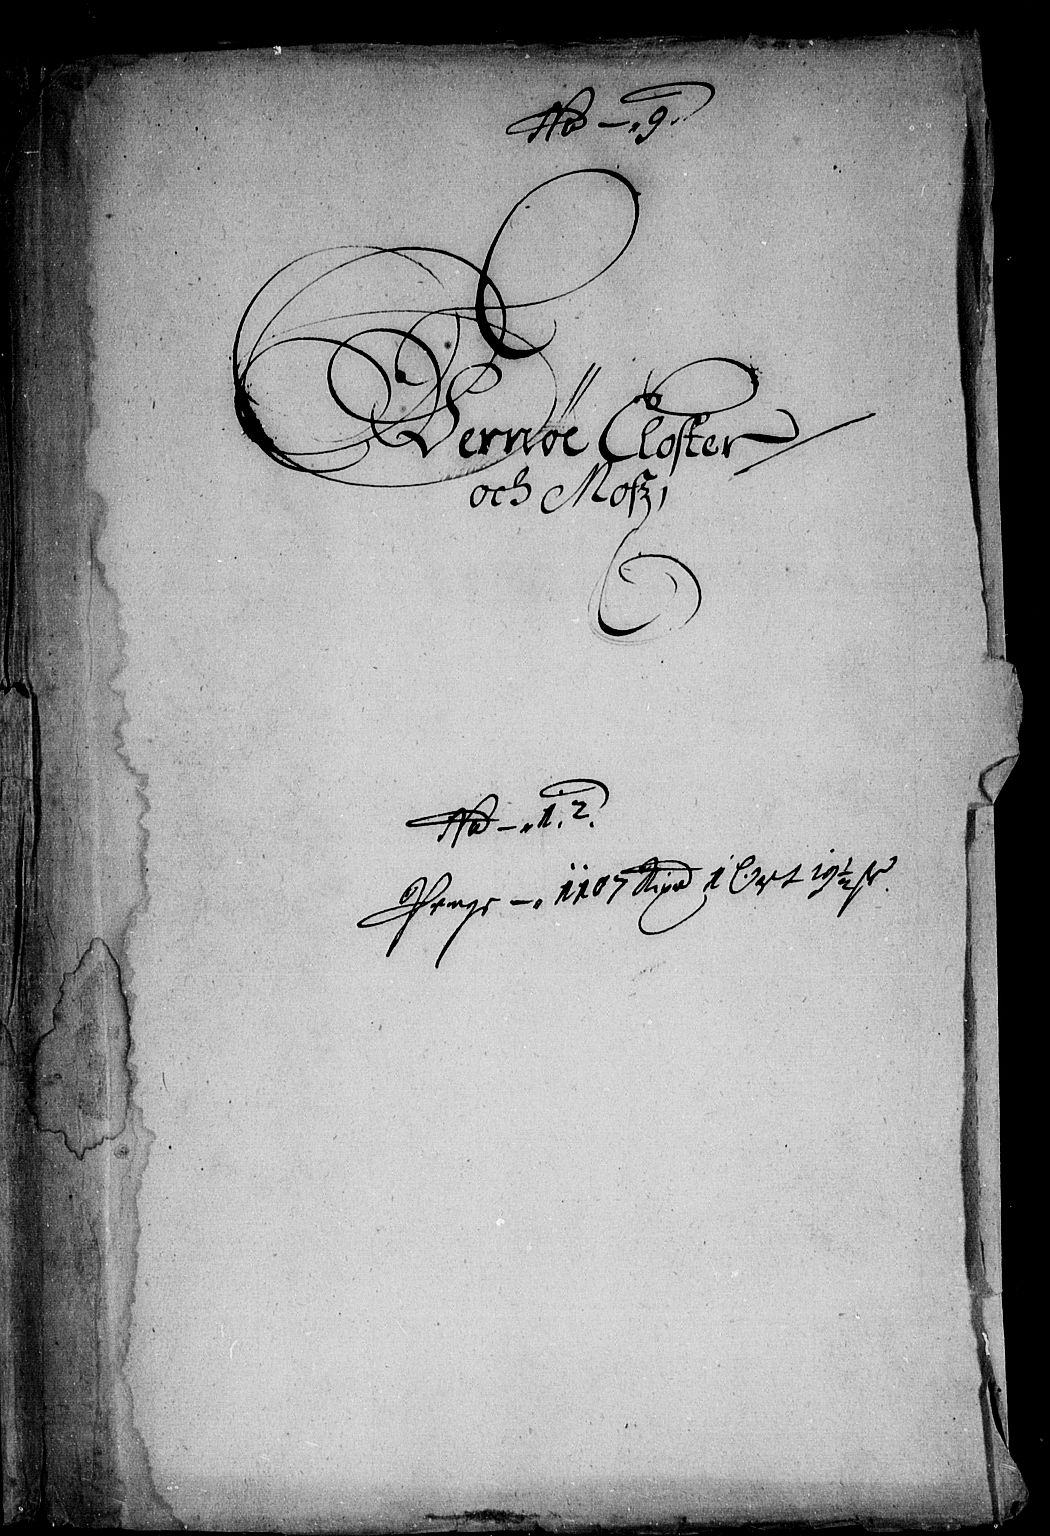 No – 9.
Vernöe Closter
och Mosz,
No – 1. 2.
Penge – 1107 Rixd 1 Ort 19½ sk.